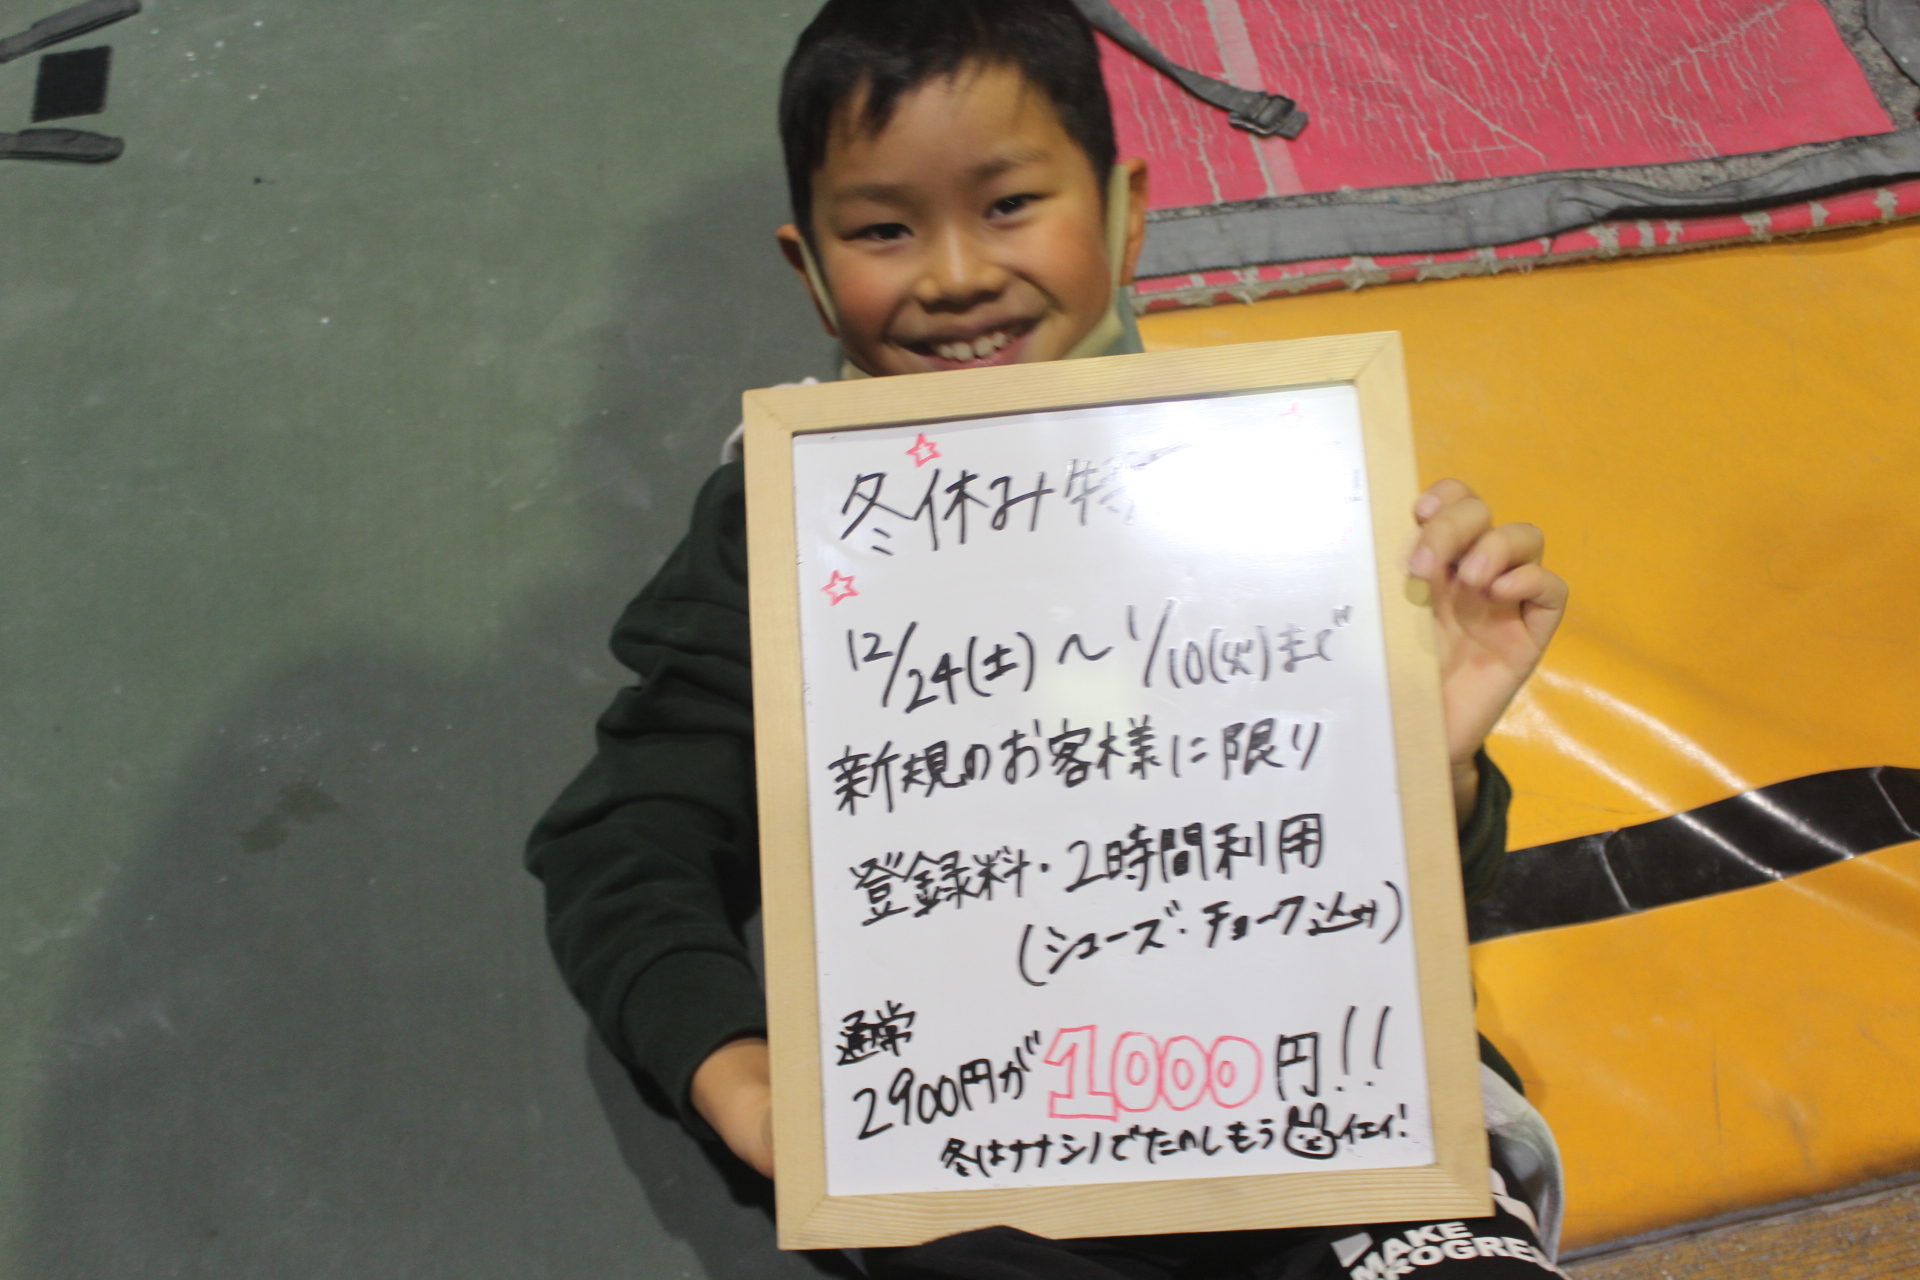 冬休み特
12/24(土)～1/10(火)まで
新規のお客様に限り
登録料・2時間利用
(シューズ・チョーク込み)
通常
2900円が1000円!!
冬はナナシノでたのしもうイェイ!
MAKE
PROGRE